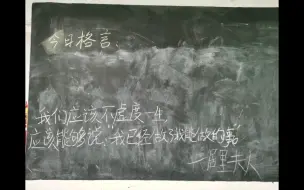 今日格言：
我们应该不虚度一生
应该能够说“我已经做了我能做的事”
—居里夫人